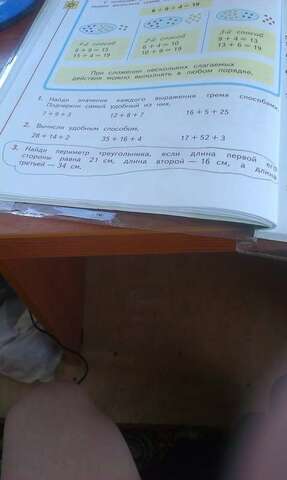 6 + 9 + 4 = 19
1-й способ
6 + 9 = 15
15 + 4 = 19
2-й способ
6 + 4 = 10
10 + 9 = 19
3-й способ
9 + 4 = 13
13 + 6 = 19
При сложении нескольких слагаемых
действия можно выполнять в любом порядке.
1. Найди значение каждого выражения тремя способами.
Подчеркни самый удобный из них.
7 + 9 + 3 12 + 8 + 7 16 + 5 + 25
2. Вычисли удобным способом.
28 + 14 + 2 35 + 16 + 4 17 + 52 + 3
3. Найди периметр треугольника, если длина первой его
стороны равна 21 см, длина второй — 16 см, а длина
третьей — 34 см.